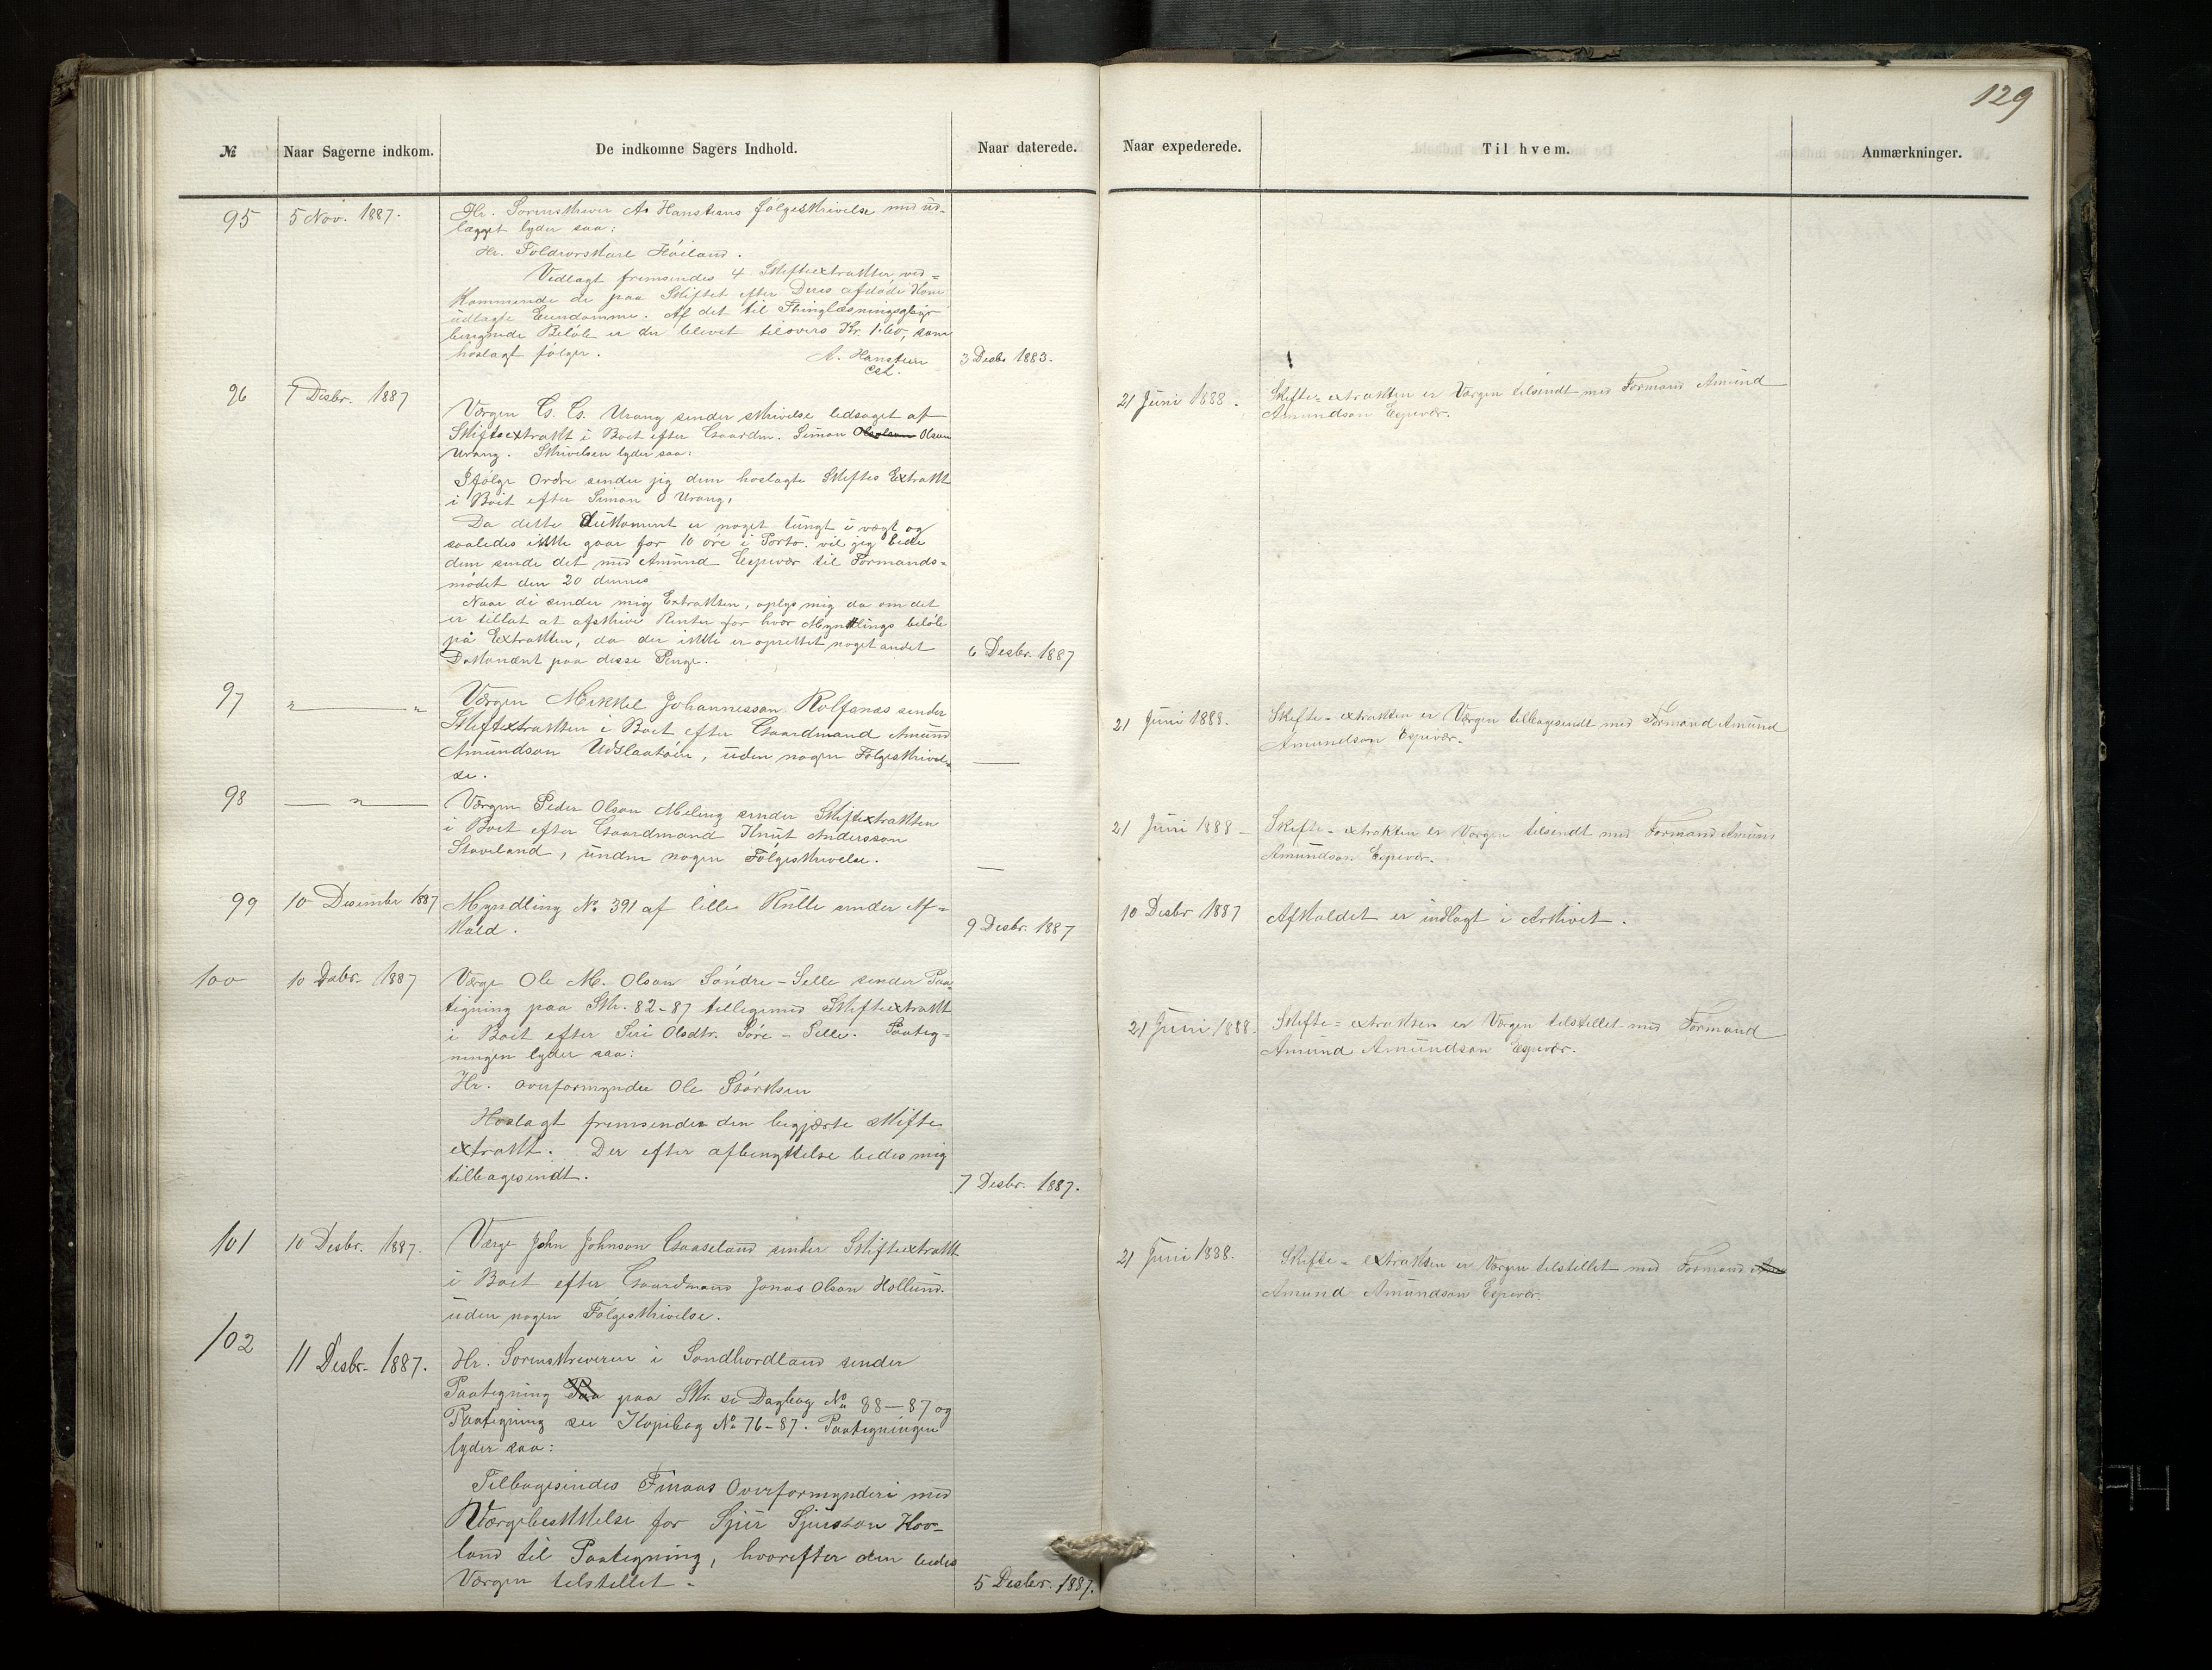 129
№
Naar Sagerne indkom.
De indkomne Sagers Indhold.
Naar daterede.
Naar expederede.
Til hvem.
Anmærkninger.
95
5 Nov. 1887.
Hr. Sorenskriver A. Hansteens følgeskrivelse med ud-
lægget lyder saa:
Hr. Høiland.
Vedlagt fremsendes 4 Skifteextrakter ved=
kommende de paa Skiftet efter Deres afdøde Kone
udlagte Eiendomme. Af det til Thinglæsningsgebyr
beregnede Beløb er der blevet tilovers Kr. 1.60, som
hoslagt følger.
A. Hansteen
cst.
3 Desbr 1883.
96
7 Desbr. 1887
Værgen G. G. Urang sender skrivelse ledsaget af
Skifteextrakt i Boet efter Gaardm. Simon Olson
Urang. Skrivelsen lyder saa:
Ifølge Ordre sender jig dem hoslagte Skiftes Extrakt
i Boet efter Simon O Urang,
Da dette Dukkoment er noget tungt i vægt og
saaledes ikke gaar for 10 øre i Porto. vil jeg bede
dem sende det med Amund Espevær til Formands-
mødet den 20 dennes
Naar di sender mig Extrakten, oplys mig da om det
er tillat at afskrive Renter for hver Myndlings beløb
på Extrakten, da der ikke er oprettet noget andet
Dokkument paa disse Penge.
6 Desbr. 1887
21 Juni 1888.
Skifte-extrakten er Værgen tilsendt med Formand Amund
Amundson Espevær.
97
" "
Værgen Mikkel Johannesson Rolfsnæs sender
Skiftextrakten i Boet efter Gaardmand Amund
Amundson Udslaatøen, uden nogen Følgeskrivel-
se.
—
21 Juni 1888.
Skifte-extrakten er Værgen tilbagesendt med Formand Amund
Amundson Espevær.
98
— " —
Værgen Peder Olson Meling sender Skiftextrakten
i Boet efter Gaardmand Knut Andersson
Staveland, unden nogen Følgeskrivelse.
—
21 Juni 1888 -
Skifte-extrakten er Værgen tilsendt med Formand Amund
Amundson Espevær.
99
10 Desember 1887
Myndling No 391 af lille Kulle sender Af-
kald.
9 Desbr. 1887
10 Desbr 1887
Afkaldet er indlagt i Arkivet.
100
10 Desbr. 1887
Værge Ole M. Olson Søndre-Selle sender Paa-
tigning paa Skr. 82-87 tilligemed Skifteextrakt
i Boet efter Siri Olsdtr. Søre-Selle. Paateg-
ningen lyder saa:
Hr. overformynder Ole Størksen
Hoslagt fremsendes den begjærte skifte
extrakt. Der efter afbenyttelse bedes mig
tilbagesendt.
7 Desbr. 1887.
21 Juni 1888.
Skifte-extrakten er Værgen tilstillet med Formand
Amund Amundson Espevær.
101
10 Desbr. 1887.
Værge John Johnson Gaaseland sender Skifteextrakt
i Boet efter Gaardmand Jonas Olson Hollund.
uden nogen Følgeskrivelse.
21 Juni 1888.
Skifte-extrakten er Værgen tilstillet med Formand
Amund Amundson Espevær.
102
11 Desbr. 1887.
Hr. Sorenskriveren i Søndhordland sender
Paategning Paa paa Skr. se Dagbog № 88-87 og
Paategning se Kopibog № 76-87. Paategningen
lyder saa:
Tilbagesendes Finaas Overformynderi med
Værgebeskikkelse for Sjur Sjursson Hov-
land til Paategning, hvorefter den bedes
Værgen tilstillet -
5 Desbr. 1887.